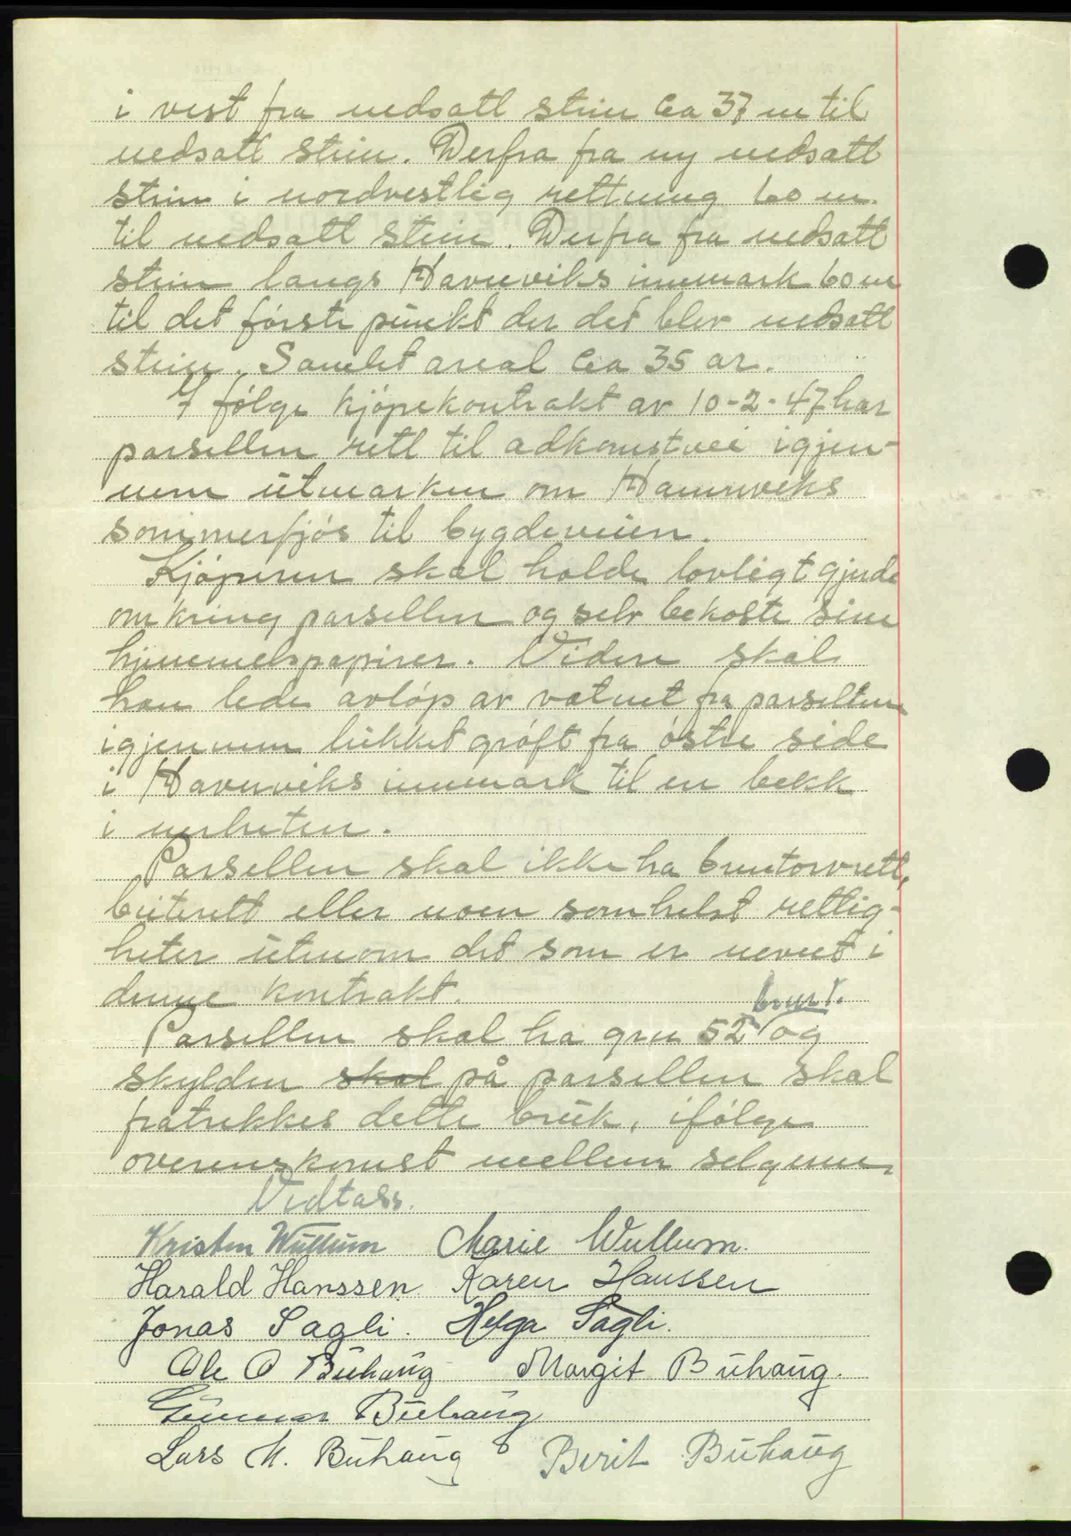 i vest fra nedsatt stein ca 37 m til
nedsatt stein. Derfra fra ny nedsatt
stein i nordvestlig rettning 60 m.
til nedsatt stein. Derfra fra nedsatt
stein langs Havnviks innmark 60 m
til det första punkt der det blev nedsatt
stein. Samlet areal ca 35 ar.
If følge kjöpekontrakt av 10-2-47 har
parsellen rett til adkomstvei igjen-
nem utmarken om Havnviks
sommerfjös til bygdeveien.
Kjöperen skal holde lovligt gjerde
omkring parsellen og selv bekoste sine
hjemmelspapirer. Videre skal
han lede avlöp av vatnet fra parsellen
igjennem lukket gröft fra östre side
i Havnviks innmark til en bekk
i nerheten.
Parsellen skal ikke ha brentorvrett,
beiterett eller noen somhelst rettig-
heter utenom det som er nevnt i
denne kontrakt.
bnr.
Parsellen skal ha grn 52 og
skylden skal på parsellen skal
fratrekkes dette bruk, ifölge
overenskomst mellem selgeren,
Vedtass.
Kristen Wullum Marie Wullum.
Harald Hanssen. Karen Hanssen
Jonas Sagli. Helga Sagli.
Ole O Buhaug Margit Buhaug.
Gunnar Buhaug
Lars M. Buhaug Berit Buhaug